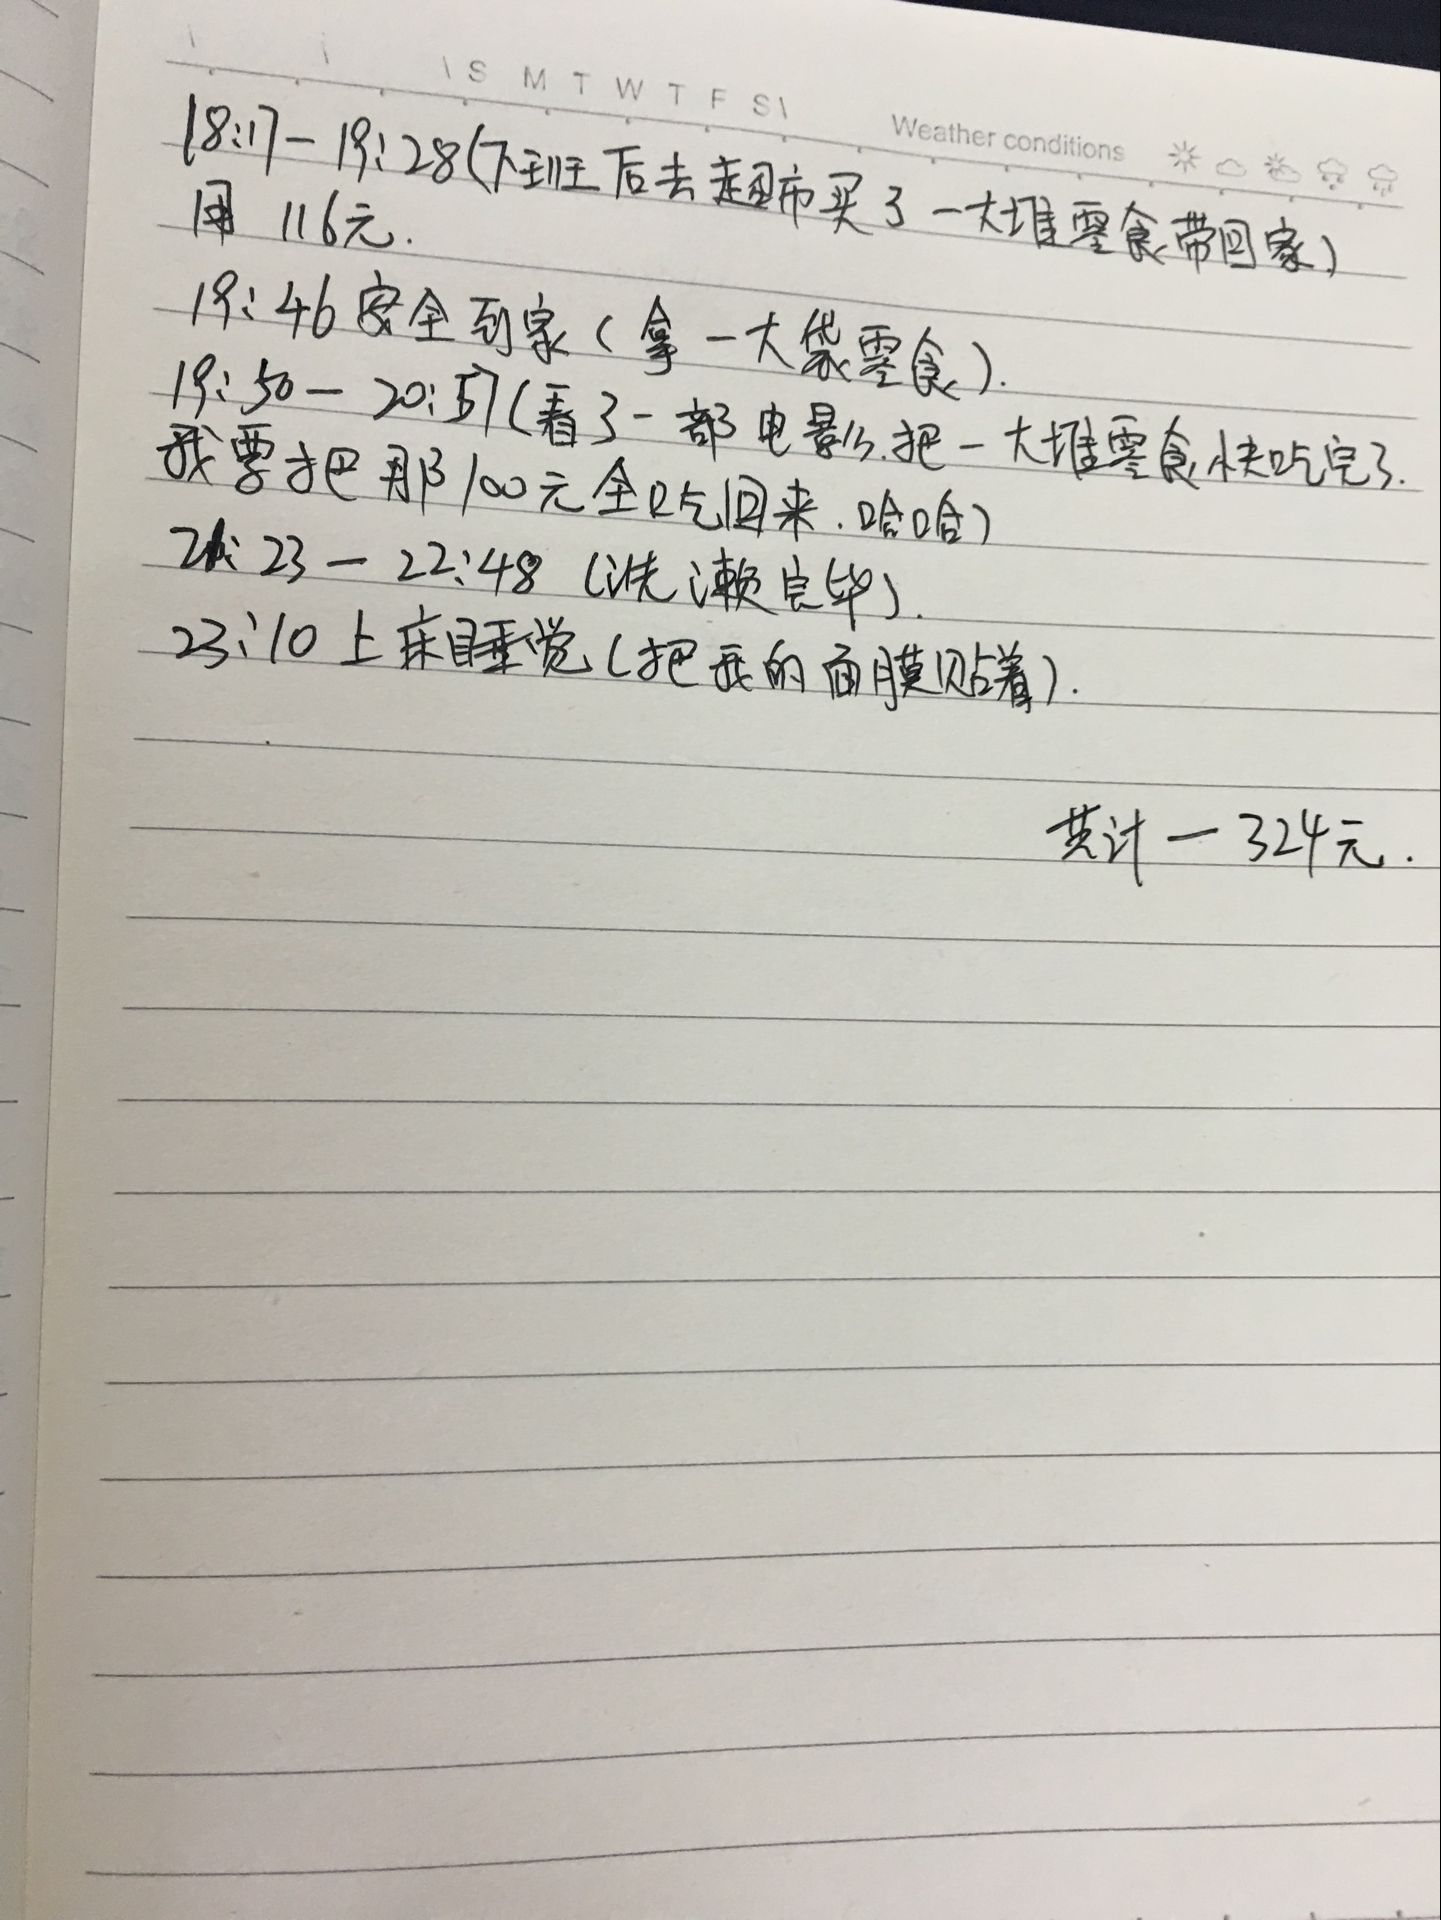 \ \ \ S M T W T F S \ Weather conditions
18:17-19:28(下班后去超市买了一大堆零食带回家)
用 116元.
19:46安全到家(拿一大袋零食).
19:50-20:57(看了一部电影.把一大堆零食快吃完了.
我要把那100元全吃回来.哈哈)
21:23-22:48(洗漱完毕).
23:10上床睡觉(把我的面膜贴着).
共计-324元.